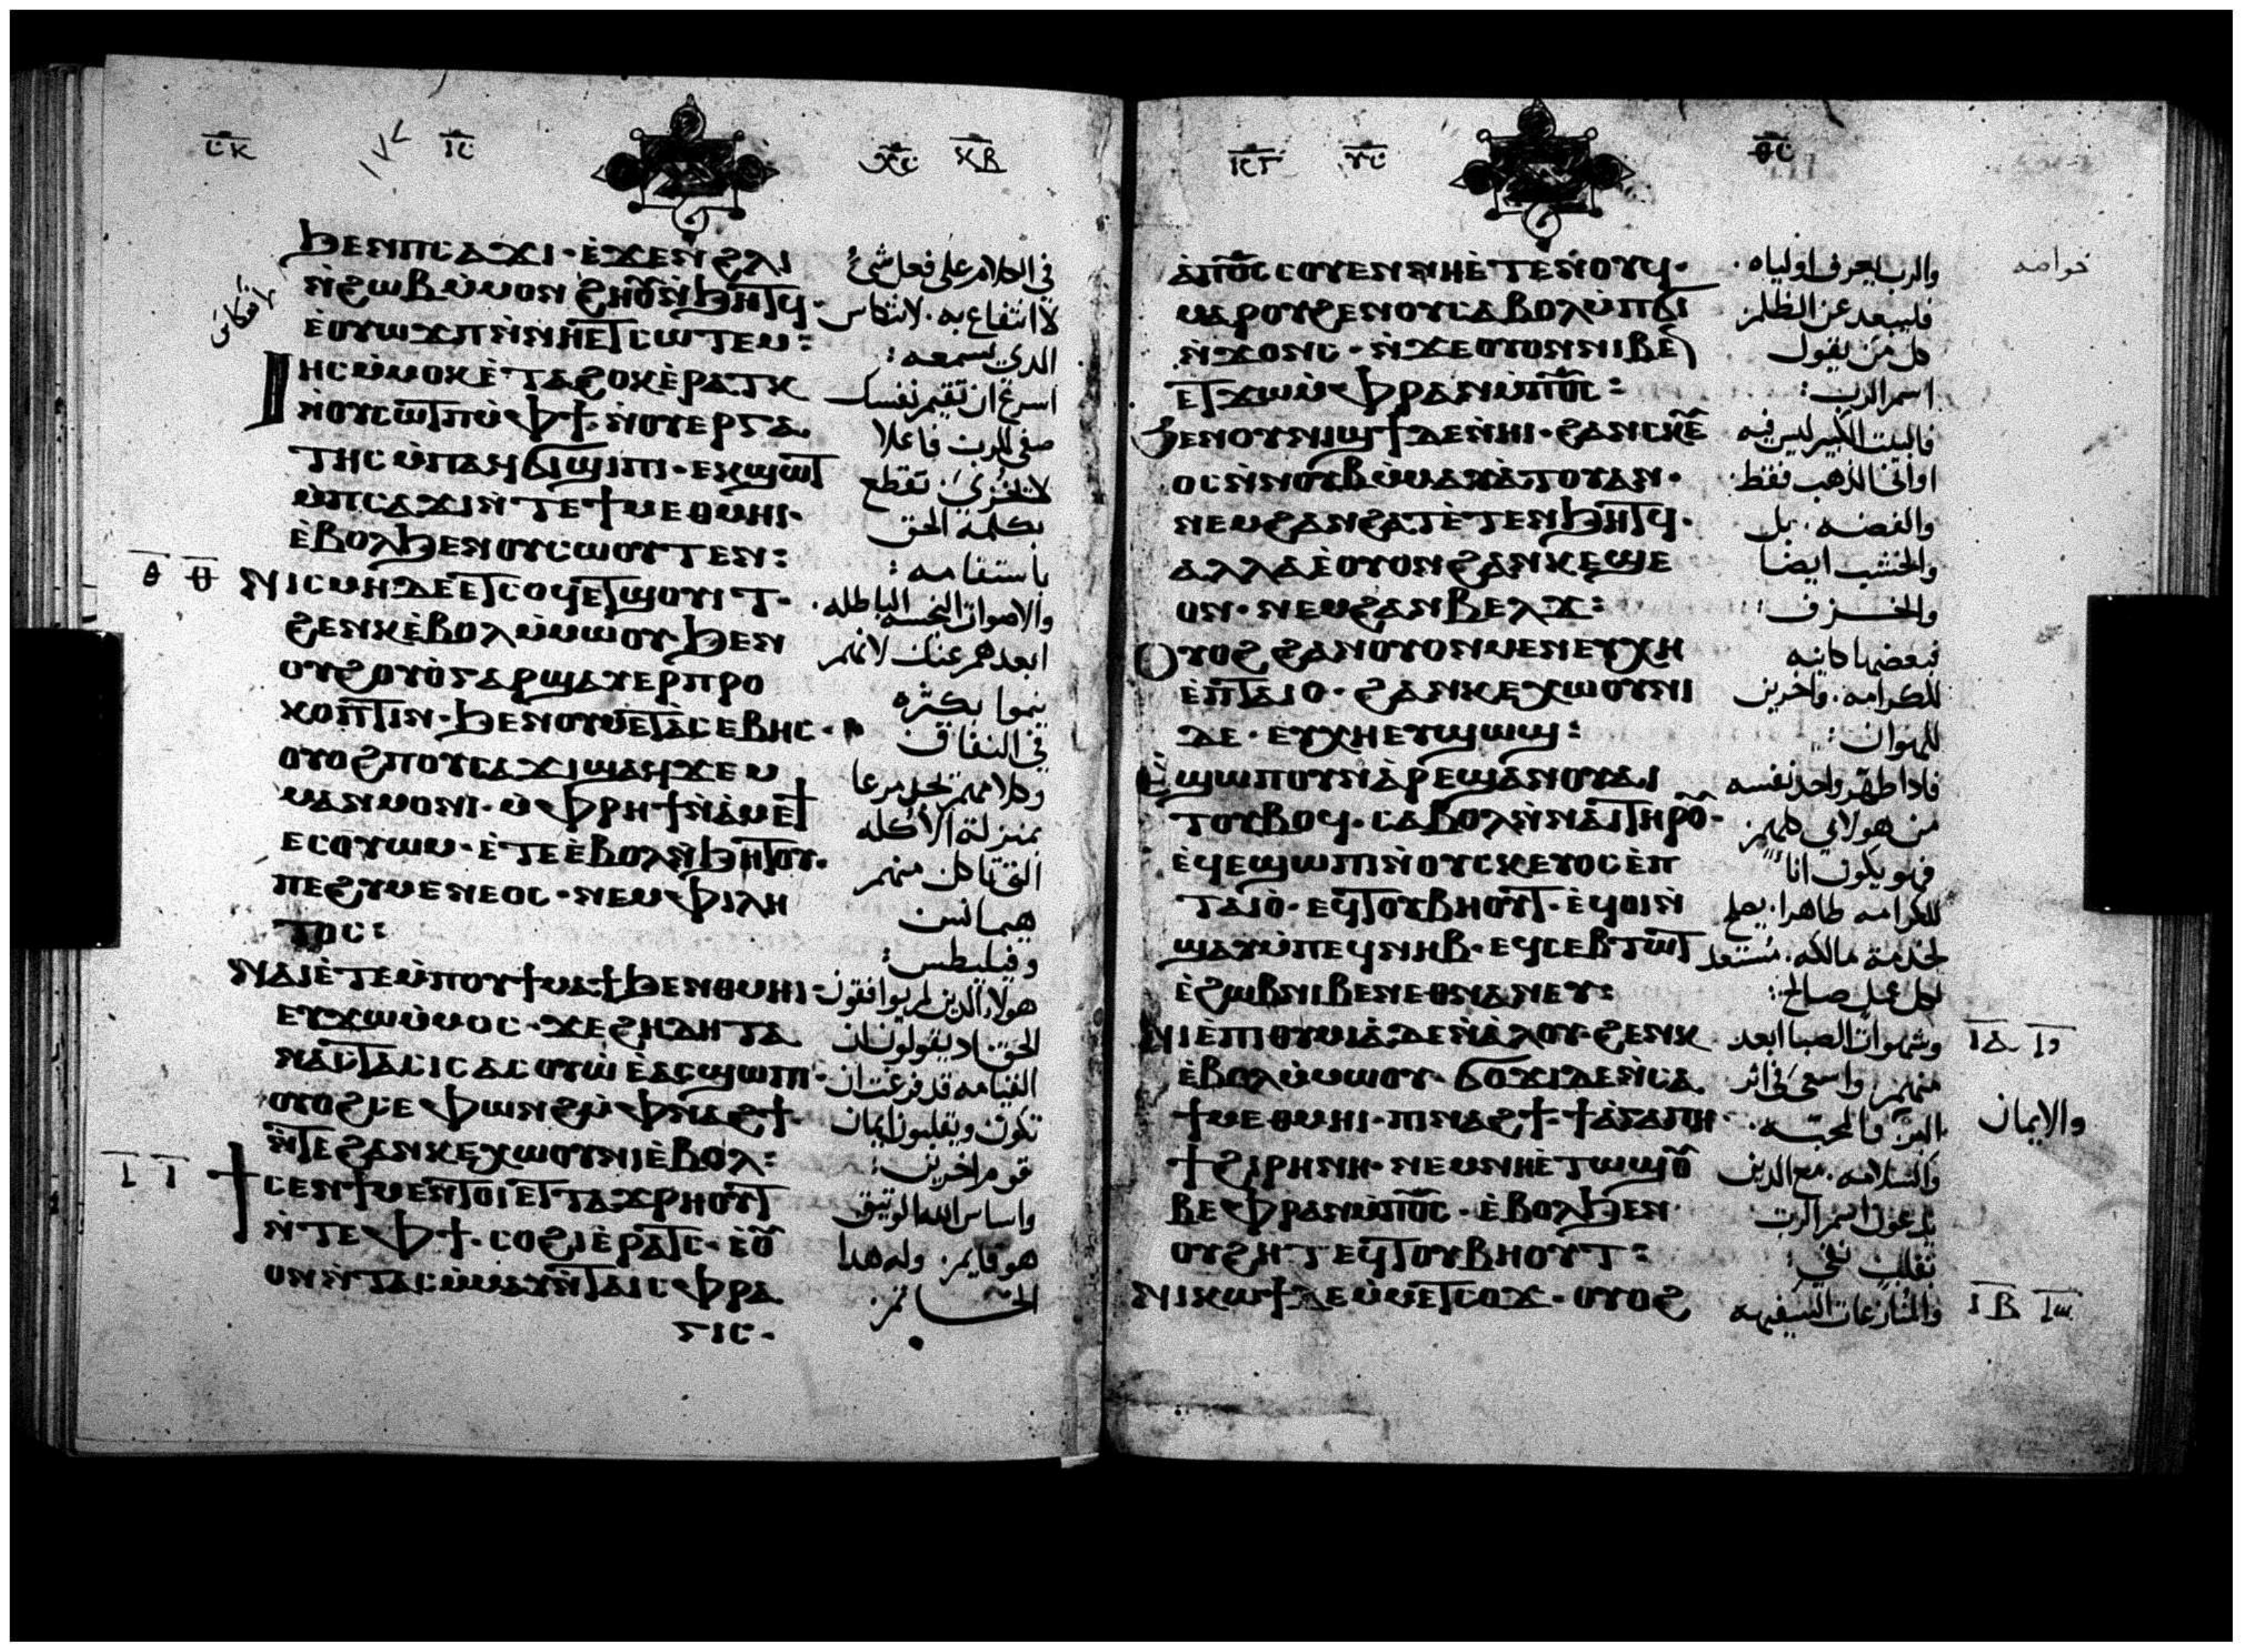 ϧⲉⲛⲡⲥⲁϫⲓ·ⲉ̀ϫⲉⲛϩⲗⲓ
ⲛ̀ϩⲱⲃⲙ̀ⲙⲟⲛ ϩⲏⲟⲩⲛ̀ϧⲏⲧϥ·
ⲉ̀ⲟⲩⲱϫⲡⲛ̀ⲛⲏⲉⲧⲥⲱⲧⲉⲙ:
ⲓⲏⲥⲙ̀ⲙⲟⲕⲉ̀ⲧⲁϩⲟⲕⲉ̀ⲣⲁⲧⲕ
ⲛ̀ⲟⲩⲥⲱⲧⲡⲙ̀ⲫϯ·ⲛ̀ⲟⲩⲉⲣⲅⲁ
ⲧⲏⲥⲙ̀ⲡⲁϥϭⲓϣⲓⲡⲓ·ⲉⲕϣⲱⲧ
ⲙ̀ⲡⲥⲁϫⲓⲛ̀ⲧⲉϯⲙⲉⲑⲙⲏⲓ·
ⲉ̀ⲃⲟⲗϧⲉⲛⲟⲩⲥⲱⲟⲩⲧⲉⲛ:
ⲛⲓⲥⲙⲏⲇⲉⲉⲧⲥⲟϥⲉⲧϣⲟⲩⲓⲧ·
ϩⲉⲛⲕⲉ̀ⲃⲟⲗⲙ̀ⲙⲱⲟⲩ·ϧⲉⲛ
ⲟⲩϩⲟⲩⲟ̀ⲅⲁⲣϣⲁⲩⲉⲣⲡⲣⲟ
ⲕⲟⲡⲧⲓⲛ·ϧⲉⲛⲟⲩⲙⲉⲧⲁⲥⲉⲃⲏⲥ·
ⲟⲩⲟϩⲡⲟⲩⲥⲁϫⲓϣⲁϥϫⲉⲙ
ⲙⲁⲛⲙⲟⲛⲓ·ⲙ̀ⲫⲣⲏϯⲛ̀ⲁ̀ⲙⲉϯ
ⲉⲥⲟⲩⲱⲙ·ⲉ̀ⲧⲉⲉ̀ⲃⲟⲗⲛ̀ϧⲏⲧⲟⲩ·
ⲡⲉϩⲩⲙⲉⲛⲉⲟⲥ·ⲛⲉⲙⲫⲓⲗⲏ
ⲧⲟⲥ:
ⲛⲁⲓⲉ̀ⲧⲉⲙ̀ⲡⲟⲩϯⲙⲁϯϧⲉⲛⲑⲙⲏⲓ·
ⲉⲩϫⲱⲙ̀ⲙⲟⲥ·ϫⲉϩⲏⲇⲏⲧⲁ
ⲛⲁⲥⲧⲁⲥⲓⲥⲁⲥⲟⲩⲱ ⲉ̀ⲁⲥϣⲱⲡⲓ·
ⲟⲩⲟϩⲥⲉⲫⲱⲛϩⲙ̀ⲫⲛⲁϩϯ·
ⲛ̀ⲧⲉϩⲁⲛⲕⲉⲭⲱⲟⲩⲛⲓⲉ̀ⲃⲟⲗ:
ϯⲥⲉⲛϯⲙⲉⲛⲧⲟⲓⲉⲧⲧⲁϫⲣⲏⲟⲩⲧ
ⲛ̀ⲧⲉⲫϯ·ⲥⲟϩⲓⲉ̀ⲣⲁⲧⲥ·ⲉ̀ⲟⲩ
ⲟⲛⲛ̀ⲧⲁⲥⲙ̀ⲙⲁⲩⲛ̀ⲧⲁⲓⲥⲫⲣⲁ
ⲅⲓⲥ·
في الكلام على فعل شئ
لا انتفاع به· لانتكاس
الدي يسمعه:
اسرع ان تقيم نفسك
صفى للرب فاعلا
لا تخزى· تقطع
بكلمة الحق
باستقامه:
والاصوات النجسه الباطله·
ابعدهم عنك لانهم
ينموا بكثره
في النفاق
وكلامهم تجد مرعا
بمنزلة الاكله
التي تاكل منهم
هيمانس
وفيليطس:
هولاء الدين لم يوافقون
الحق اد يقولون ان
القيامه قد فرغت ان
تكون ويقلبون ايمان
قوم اخرين:
واساس الله الوتيق
هو قايم· وله هدا
الخاتم·
ⲁ̀ⲡϭⲟⲓⲥⲥⲟⲩⲉⲛⲛⲏⲉ̀ⲧⲉⲛⲟⲩϥ·
ⲙⲁⲣⲟⲩϩⲉⲛⲟⲩⲥⲁⲃⲟⲗⲙ̀ⲡϭⲓ
ⲛ̀ϫⲟⲛⲥ·ⲛ̀ϫⲉⲟⲩⲟⲛⲛⲓⲃⲉⲛ
ⲉⲧϫⲱⲙ̀ⲫⲣⲁⲛⲙ̀ⲡϭⲟⲓⲥ:
ϧⲉⲛⲟⲩⲛⲓϣϯⲇⲉⲛⲏⲓ·ϩⲁⲛⲥⲕⲉⲩ
ⲟⲥⲛ̀ⲛⲟⲩⲃⲙ̀ⲙⲁⲩⲁ̀ⲧⲟⲩⲁⲛ·
ⲛⲉⲙϩⲁⲛϩⲁⲧⲉ̀ⲧⲉⲛϧⲏⲧϥ·
ⲁⲗⲗⲁⲉ̀ⲟⲩⲟⲛϩⲁⲛⲕⲉϣⲉ
ⲟⲛ·ⲛⲉⲙϩⲁⲛⲃⲉⲗϫ:
ⲟⲩⲟϩϩⲁⲛⲟⲩⲟⲛⲙⲉⲛⲉⲩⲭⲏ
ⲉ̀ⲡⲧⲁⲓⲟ·ϩⲁⲛⲕⲉⲭⲱⲟⲩⲛⲓ
ⲇⲉ·ⲉⲩⲭⲏⲉⲩϣⲱϣ:
ⲉ̀ϣⲱⲡⲟⲩⲛⲁ̀ⲣⲉϣⲁⲛⲟⲩⲁⲓ
ⲧⲟⲩⲃⲟϥ·ⲥⲁⲃⲟⲗⲛ̀ⲛⲁⲓⲧⲏⲣⲟⲩ·
ⲉ̀ϥⲉϣⲱⲡⲓⲛ̀ⲟⲩⲥⲕⲉⲩⲟⲥⲉ̀ⲡ
ⲧⲁⲓⲟ̀·ⲉϥⲧⲟⲩⲃⲏⲟⲩⲧ·ⲉ̀ϥⲟⲓⲛ̀
ϣⲁⲩⲙ̀ⲡⲉϥⲛⲏⲃ·ⲉϥⲥⲉⲃⲧⲱⲧ
ⲉ̀ϩⲱⲃⲛⲓⲃⲉⲛⲉⲑⲛⲁⲛⲉⲩ:
ⲛⲓⲉⲡⲓⲑⲩⲙⲓⲁ̀ⲇⲉⲛ̀ⲁ̀ⲗⲟⲩ·ϩⲉⲛⲕ
ⲉ̀ⲃⲟⲗⲙ̀ⲙⲱⲟⲩ·ϭⲟϫⲓⲇⲉⲛ̀ⲥⲁ
ϯⲙⲉⲑⲙⲏⲓ·ⲡⲓⲛⲁϩϯ·ϯⲁ̀ⲅⲁⲡⲏ·
ϯϩⲓⲣⲏⲛⲏ·ⲛⲉⲙⲛⲏⲉ̀ⲧⲱϣⲟⲩ
ⲃⲉⲫⲣⲁⲛⲙ̀ⲡϭⲟⲓⲥ·ⲉ̀ⲃⲟⲗϧⲉⲛ
ⲟⲩϩⲏⲧⲉϥⲧⲟⲩⲃⲏⲟⲩⲧ:
ⲛⲓⲕⲱϯⲇⲉⲙ̀ⲙⲉⲧⲥⲟϫ·ⲟⲩⲟϩ
والرب يعرف اولياه·
فليبعد عن الظلم
كل من يقول
اسم الرب:
فالبيت الكبير ليس فيه
اواني الذهب فقط·
والفضه· بل
والخشب ايضا
والخزف:
فبعضها كاينه
للكرامه· واخرين
للهوان:
فادا طهر واحد نفسه
من هولاي كلهم
فهو يكون انا
للكرامه طاهرا· يصلح
لخدمة مالكه· مستعد
لكل عمل صالح:
وشهوات الصبا ابعد
منهم· واسعى في اثر
البر والمحبه·
والسلامه· مع الدين
يدعون اسم الرب
بقلب نقي:
والمنازعات السفيهه
والايمان
ⲓⲁ
ⲓⲃ